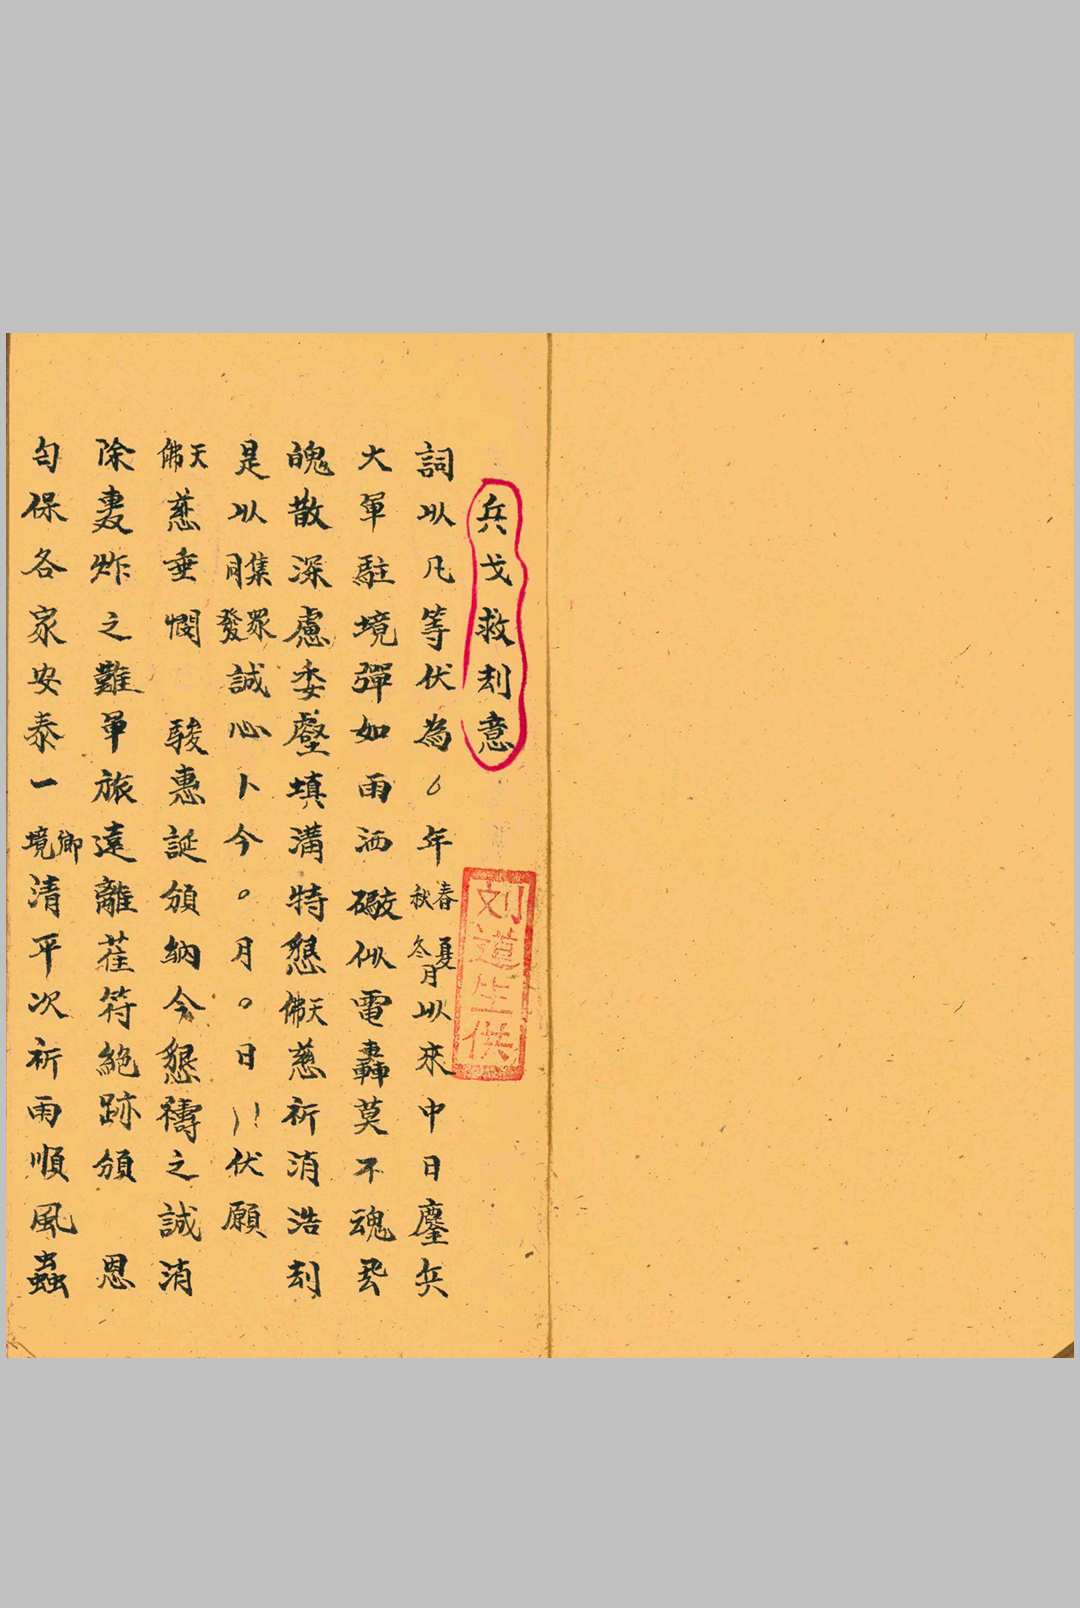 兵戈救刦意
刘道生供
詞以凡等伏為○年春夏秋冬月以來中日鏖兵
大軍駐境彈如雨洒礮似電轟莫不魂飛
魄散深慮委壑填溝特懇天佛慈祈消浩刦
是以集眾同發誠心卜今○月○日伏願
天佛慈垂憫 駿惠誕頒納今懇禱之誠消
除轟炸之難軍旅遠離萑苻絕跡頒 恩
匄保各家安泰一鄉境清平次祈雨順風蟲